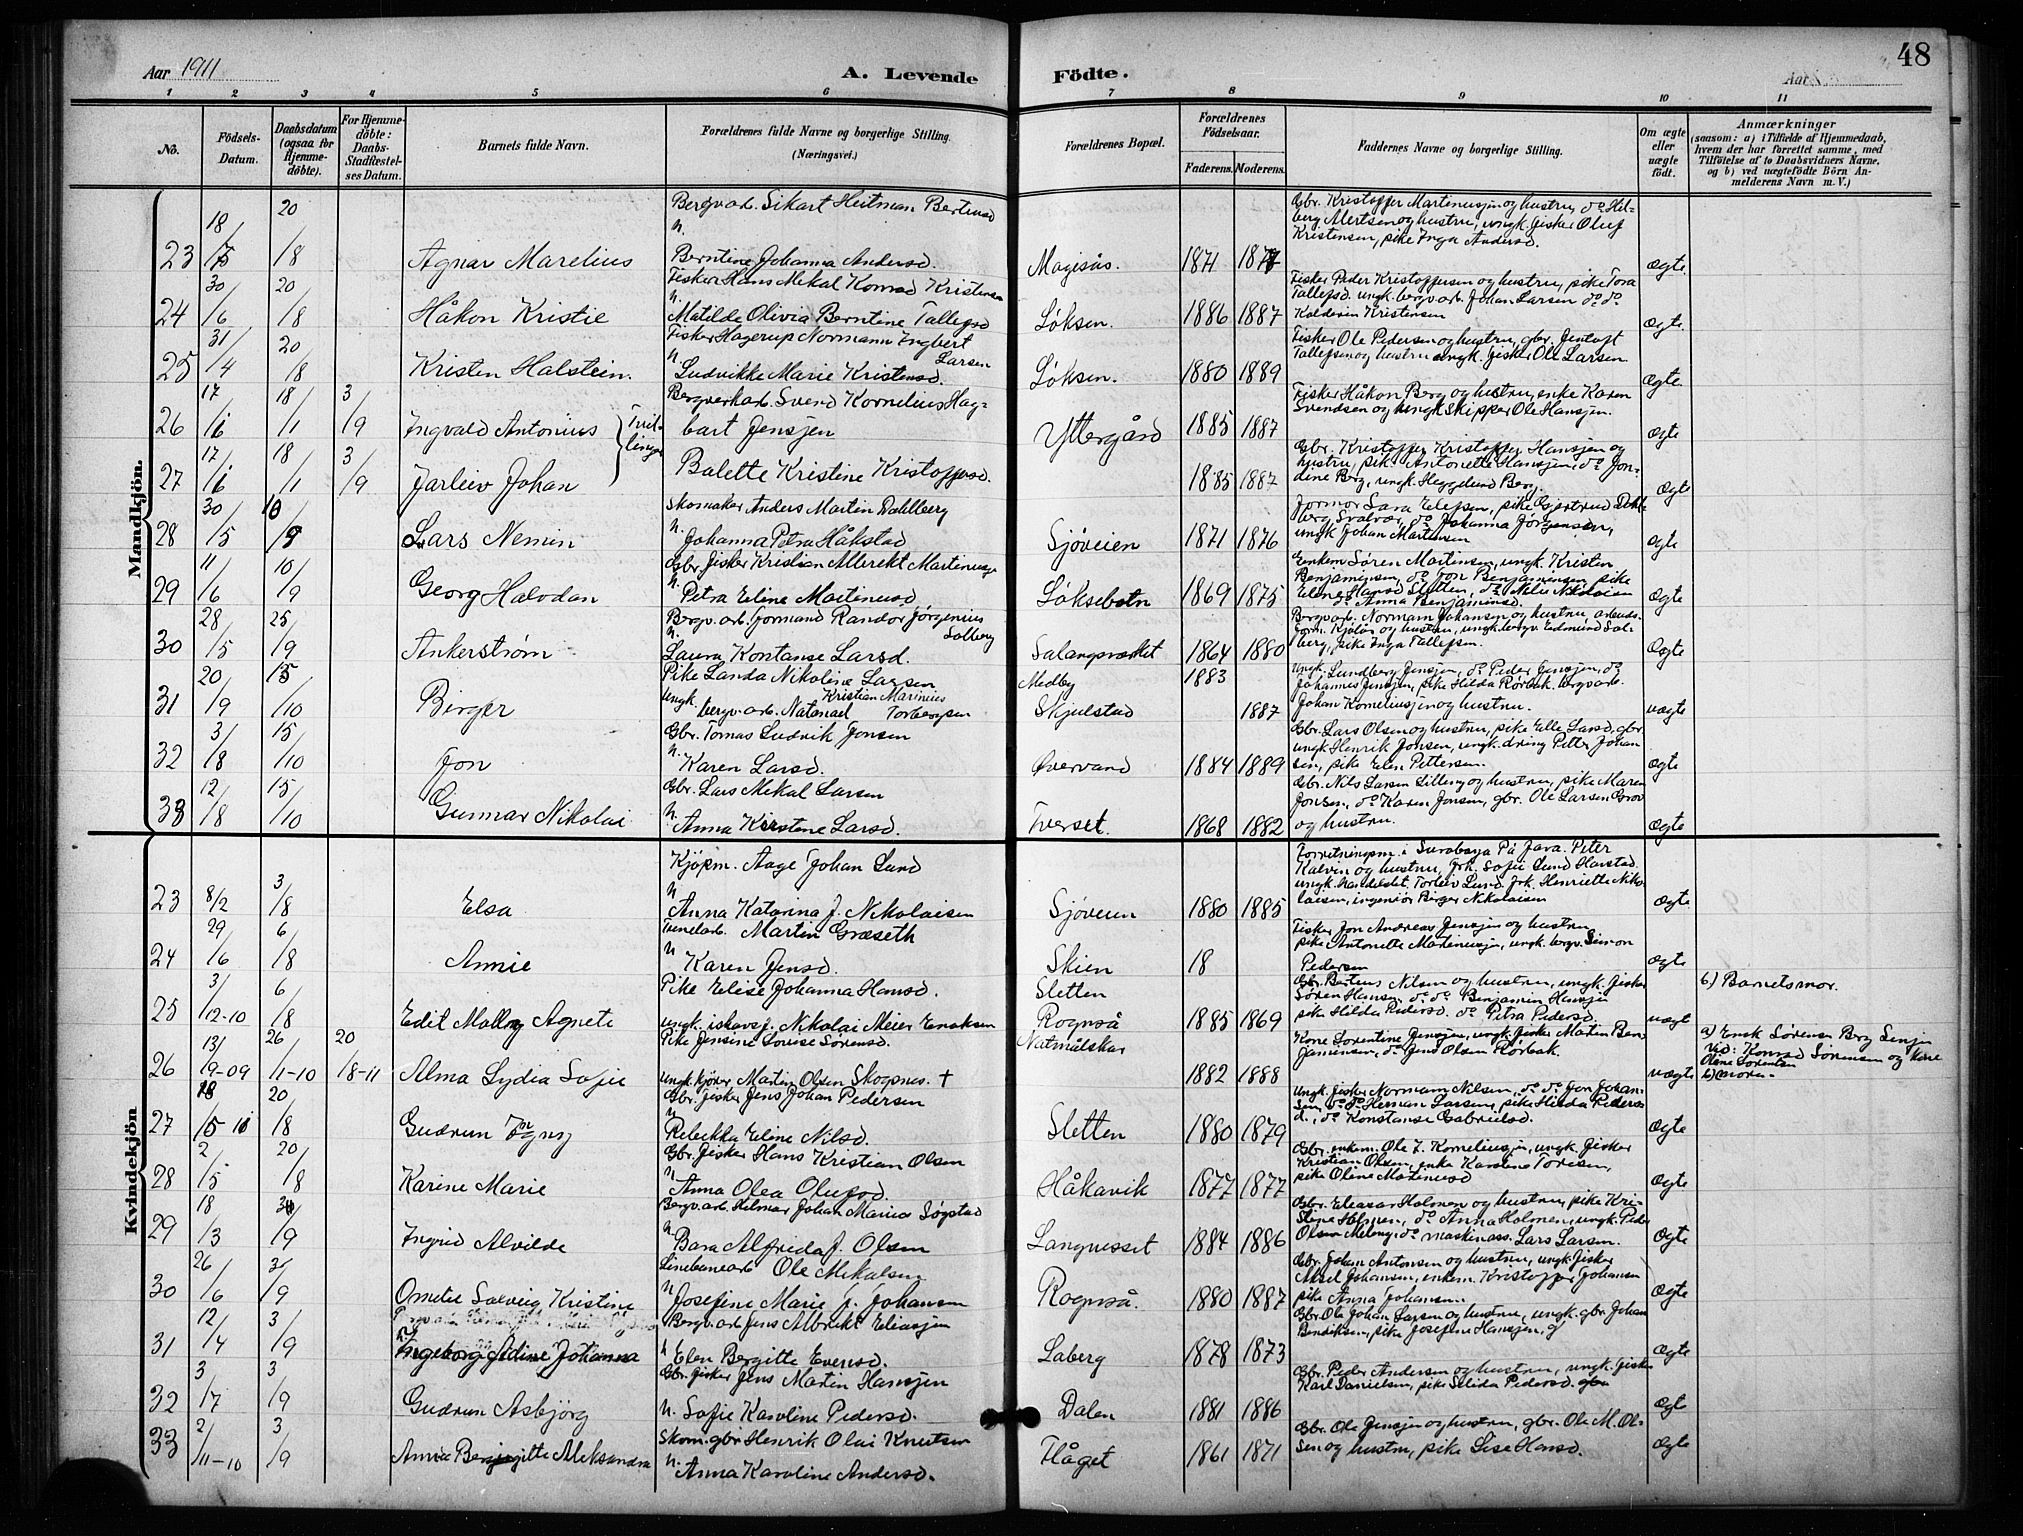 48
Aar 1911
A. Levende
Födte.
Aar
1 2 3 4 5 6 7 8 9 10 11
No.
Födsels-Datum.
Daabsdatum (ogsaa for Hjemme-döbte).
For Hjemme-döbte: Daabs-Stadfæstel-ses Datum.
Barnets fulde Navn.
Forældrenes fulde Navne og borgerlige Stilling.
(Næringsvei.)
Forældrenes Bopæl.
Forældrenes Födselsaar.
Faderens. Moderens.
Faddernes Navne og borgerlige Stilling.
Om ægte eller uægte födt.
Anmærkninger
(saasom: a) i Tilfælde af Hjemmedaab, hvem der har forrettet samme, med Tilföielse af to Daabsvidners Navne, og b) ved uægtefödte Börn Anmelderens Navn m. V.)
Mandkjön.
23 18/5 20/8 Agnar Marelius
Bergvarb. Sikart Heitman Berteusd
n. Berntine Johanna Andersd.
Magisås. 1871 1877
Gbr. Kristoffer Martinussen og hustru, do Hilberg Mertsen og hustru, ungk. fisker Oluf Kristensen, pike Inga Andersd.
Ægte
24 30/6 20/8 Håkon Kristie
Fisker Hans Mekal Konrad Kristensen
n. Matilde Olivia Berntine Tallefsd
Løksen. 1886 1887
Fisker Peder Kristoffersen og hustru, pike Tora Tallefsd. ungk. bergvarb. Johan Larsen do do Kalderin Kristensen
Ægte
25 31/4 20/8 Kristen Halstein.
Fisker Hagerup Normann Ingbert Larsen
n. Ludvikke Marie Kristensd.
Løksen. 1880 1889
Fisker Ole Pedersen og hustru, gbr. Jentoft Tallefsen og hustru ungk. fisker Ole Larsen
Ægte
26 17/6 18/11 3/9 Ingvald Antonius } Tvillinger
Bergverkarb. Svend Kornelius Hagbart Jensen
Yttergård 1885 1887
Fisker Håkon Berg og hustru, enke Karen Svendsen og ungk skipper Ole Hansen.
Ægte
27 17/6 18/11 3/9 Jarleiv Johan
Balette Kristine Kristoffersd.
1885 1887
Gbr. Kristoffer Kristoffer Hansen og hustru, pike Antonette Hansen, do Jondine Berg, ungk. Heggelund Berg.
Ægte
28 30/5 10/9 Lars Nemin
Skomaker Anders Martin Dahlberg
n. Johanna Petra Håkstad
Sjøveien 1871 1876
Jormor Sara Elefsen, pike Gjertrud Dahlberg Svolvær, do Johanna Jørgensen, ungk Johan Martensen
Ægte
29 11/6 10/9 Georg Halvdan
Gbr. fisker Kristian Albrekt Martinussen
n. Petra Eline Martinusd.
Løksebotn 1869 1875
Enkem Søren Martinsen, ungk. Kristen Benjaminsen, do Jon Benjaminsen pike Elene Hansd Sletten, do Nelie Nikolaisen do Anna Benjaminsd.
Ægte
30 28/5 25/9 Ankerstrøm
Bergv. arb. Formand Randor Jørgenius Solberg
n. Laura Konstanse Larsd.
Salangsverket 1864 1880
Bergvarb. Normann Johansen og hustru, arbeidsform. Kjolås og hustru, ungk. bergv. Edmund Solberg, pike Inga Tallefsen.
Ægte
31 20/9 15/10 Birger
Pike Landa Nikoline Larsen
ungk. bergv. arb. Natanael Kristian Marinius Torbergsen
Medby 1883
Skjulstad 1887
Ungk. Lundberg Jensen, do Peder Jensen, do Johannes Jensen, pike Hilda Rørbak, bergvarb. Johan Korneliussen og hustru.
uægte
32 3/8 15/10 Jon
Gbr. Tomas Ludvik Jonsen
n. Karen Larsd.
Øvervand 1884 1889
Gbr. Lars Olsen og hustru, pike Elle Larsd, gbr ungk Henrik Jonsen, ungk. dreng Peter Johansen, pike Elen Pettersen.
Ægte
33 12/8 15/10 Gunnar Nikolai
Gbr. Lars Mekal Larsen
n. Anna Kirstine Larsd.
Tverset. 1868 1882
Gbr. Nils Larsen Lilleng og hustru, pike Maren Jonsen, do Karen Jonsen, gbr. Ole Larsen Grov og hustru.
Ægte
Kvindekjön
23 8/2 3/8 Elsa
Kjøpm. Aage Johan Lund
n Anna Katarina f. Nikolaisen
Sjøveien 1880 1885
Forretningsm. i Surabaya På Java. Peter Kalvin og hustru, frk. Sofie Lund Harstad. ungk. handelsbet. Torleiv Lund. frk. Henriette Nikolaisen, ingeniør Birger Nikolaisen
Ægte
24 29/6 6/8 Annie
Tunelarb. Martin Græseth
n Karen Jensd.
Skien 18
Fisker Jon Andreas Jensen og hustru pike Antonette Martinussen, ungk. bergv. Simon Pedersen
Ægte
25 3/12-10 6/8 Edit Molly Agnete
Pike Elise Johanna Hansd.
ungk. ishavsf. Nikolai Meier Enoksen
Sletten
Rognså 1885 1869
Gbr. Berteus Nilsen og hustru, ungk. fisker Søren Hansen, do do Benjamin Hansen pike Hilda Pedersd. do Petra Pedersd.
uægt
b) Barnetsmor.
26 13/9-09 26/1-10 20/8-11 Alma Lydia Sofie
Pike Jensine Lovise Sørensd.
ungk. kjører Martin Olsen Skogsnes. †
Natmålskar 1882 1888
Kone Sørentine Jensen, ungk. fisker Martin Benjaminsen, do Jens Olsen Rørbak.
uægte
a) Ensk Sørensen Berg Senja
Vid: Konrad Sørensen og kone Oline Sørensen
b) moren.
27 18/5-11 20/8 Gudrun Agny
Gbr. fisker Jens Johan Pedersen
n Rebekka Eline Nilsd.
Sletten 1880 1879
Ungk. fisker Normann Nilsen, do do Jon Johansen, do do Herman Larsen, pike Hilda Pedersd., do Konstanse Gabrielsd.
Ægte
28 2/5 20/8 Karine Marie
Gbr. fisker Hans Kristian Olsen
n Anna Olea Olufsd.
Håkavik 1877 1877
Gbr. enkem. Ole Z. Korneliussen, ungk. fisker Kristian Olsen, enke Karoline Toresen, pike Oline Martinusd
Ægte
29 18/3 3/9 Ingrid Alvilde
Bergv. arb. Hilmar Johan Marius Søgstad
n Bara Alfreda f. Olsen
Langnesset 1884 1886
Gbr. Eleasar Holmen og hustru, pike Kristine Holmen, do Anna Holmen, ungk. Peder Olsen Meløy, do maskinass. Lars Larsen.
Ægte
30 26/6 3/9 Ometie Solveig Kristine
Linebanearb Ole Mikalsen
n Josefine Marie f. Johansen
Rognså. 1880 1887
Gbr. Johan Antonsen og hustru, ungk. fisker Aksel Johansen, enkem. Kristoffer Johansen pike Anna Johansen.
Ægte
31 12/4 3/9 Ingeborg Adine Johanna
Bergv. arb Jens Albrikt Eliassen
n Elen Bergitte Evensd.
Laberg 1878 1873
Gbr Ole Johan Larsen og hustru, ungk. gbr Johan Bendiksen, pike Josefine Hansen,
Ægte
32 3/7 3/9 Gudrun Asbjörg
Gbr. fisker Jens Martin Hansen
n. Sofie Karoline Pedersd.
Dalen 1881 1886
Gbr. Peder Andersen og hustru, ungk. fisker Karl Danielsen, pike Selida Pedersd.
Ægt
33 2/11-10 3/9 Anna Bergitte Aleksandra
Skom. gbr Henrik Olai Knutsen
n. Anna Karoline Andersd.
Flåget 1861 1871
Gbr. Ole Jensen og hustru, gbr. Ole M. Olsen og hustru, pike Lise Hansd.
Ægte